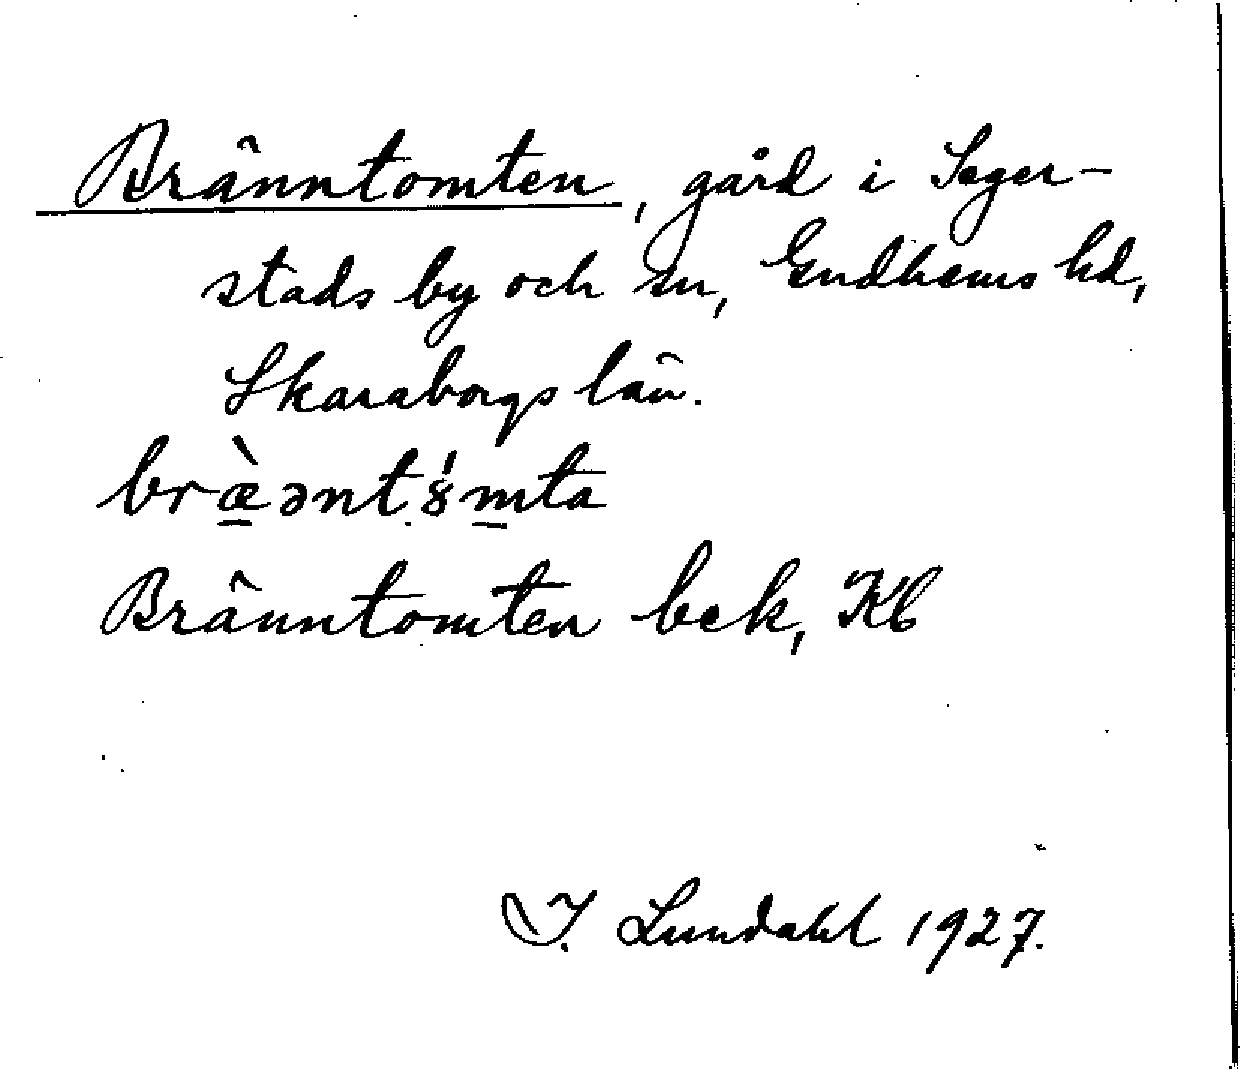 Bränntomten, gård i Seger-
stads by och sn, Gudhems hd,
Skaraborgs län.
bræ̀əntȣ́mta
Bränntomten bek, Kb
I. Lundahl 1927.